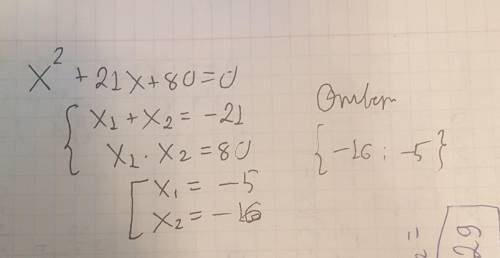 x² + 21x + 80 = 0
x₁ + x₂ = -21
x₁ · x₂ = 80
x₁ = -5
x₂ = -16
Ответ
{-16 ; -5}
=
29